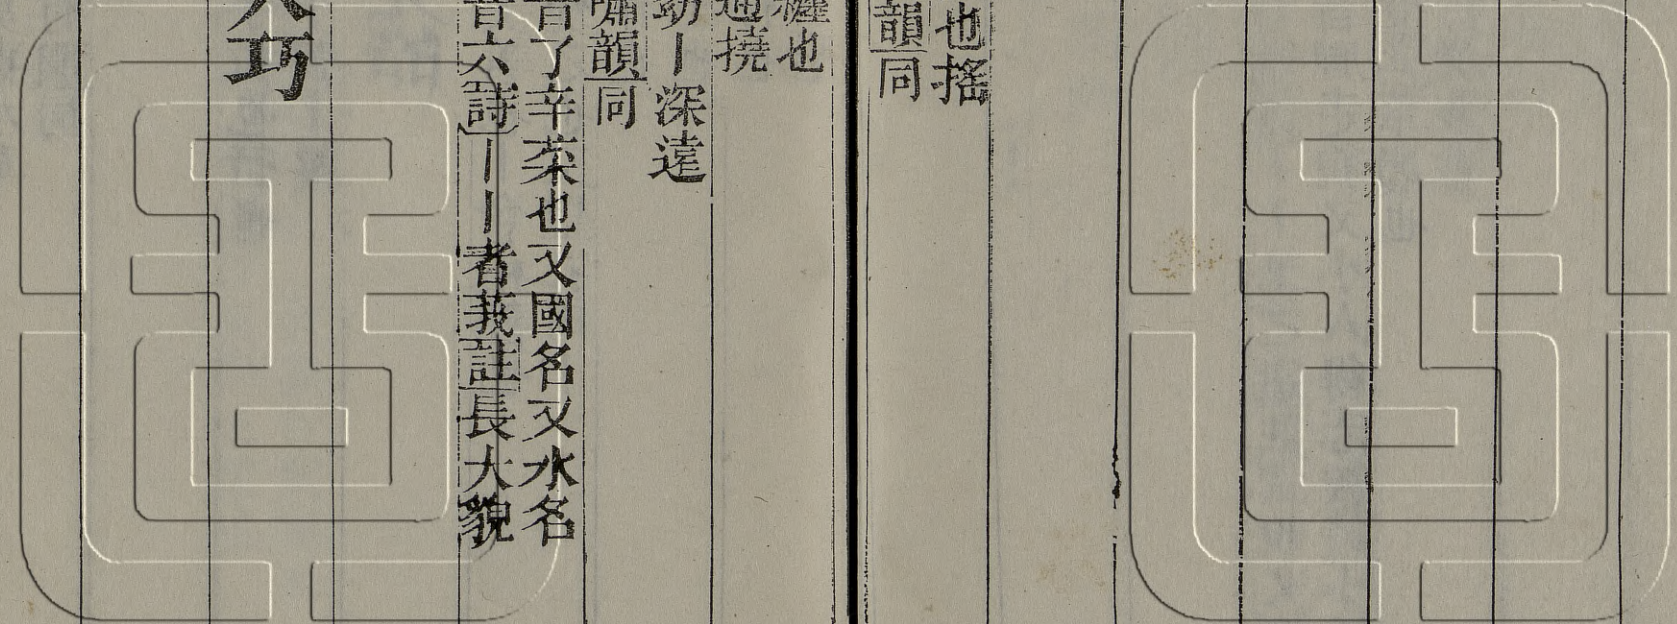 也搖
韻同
纏也
通撓
幼丨深遠
嘯韻同
音了辛菜也又國名又水名
音六詩丨丨者莪註長大貌
巧